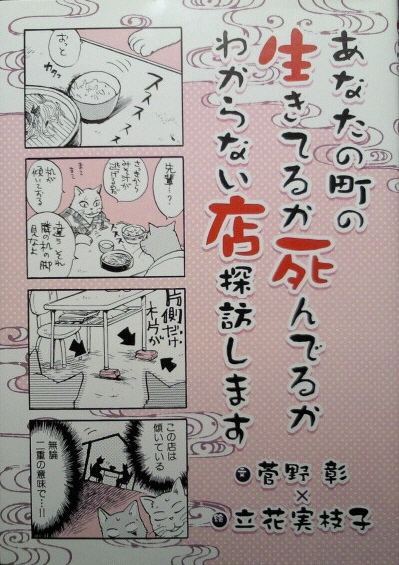 あなたの町の
生きてるか死んでるか
わからない店探訪します
文 菅野 彰
×
絵 立花実枝子
おっと
カクッ
スススススス
先輩…?
さっきから
みそ汁が
逃げるな
机が
傾いてる
違う それ
隣の机の脚
見なよ
片側だけ
木片が
この店は
傾いている
無論
二重の意味で…!!